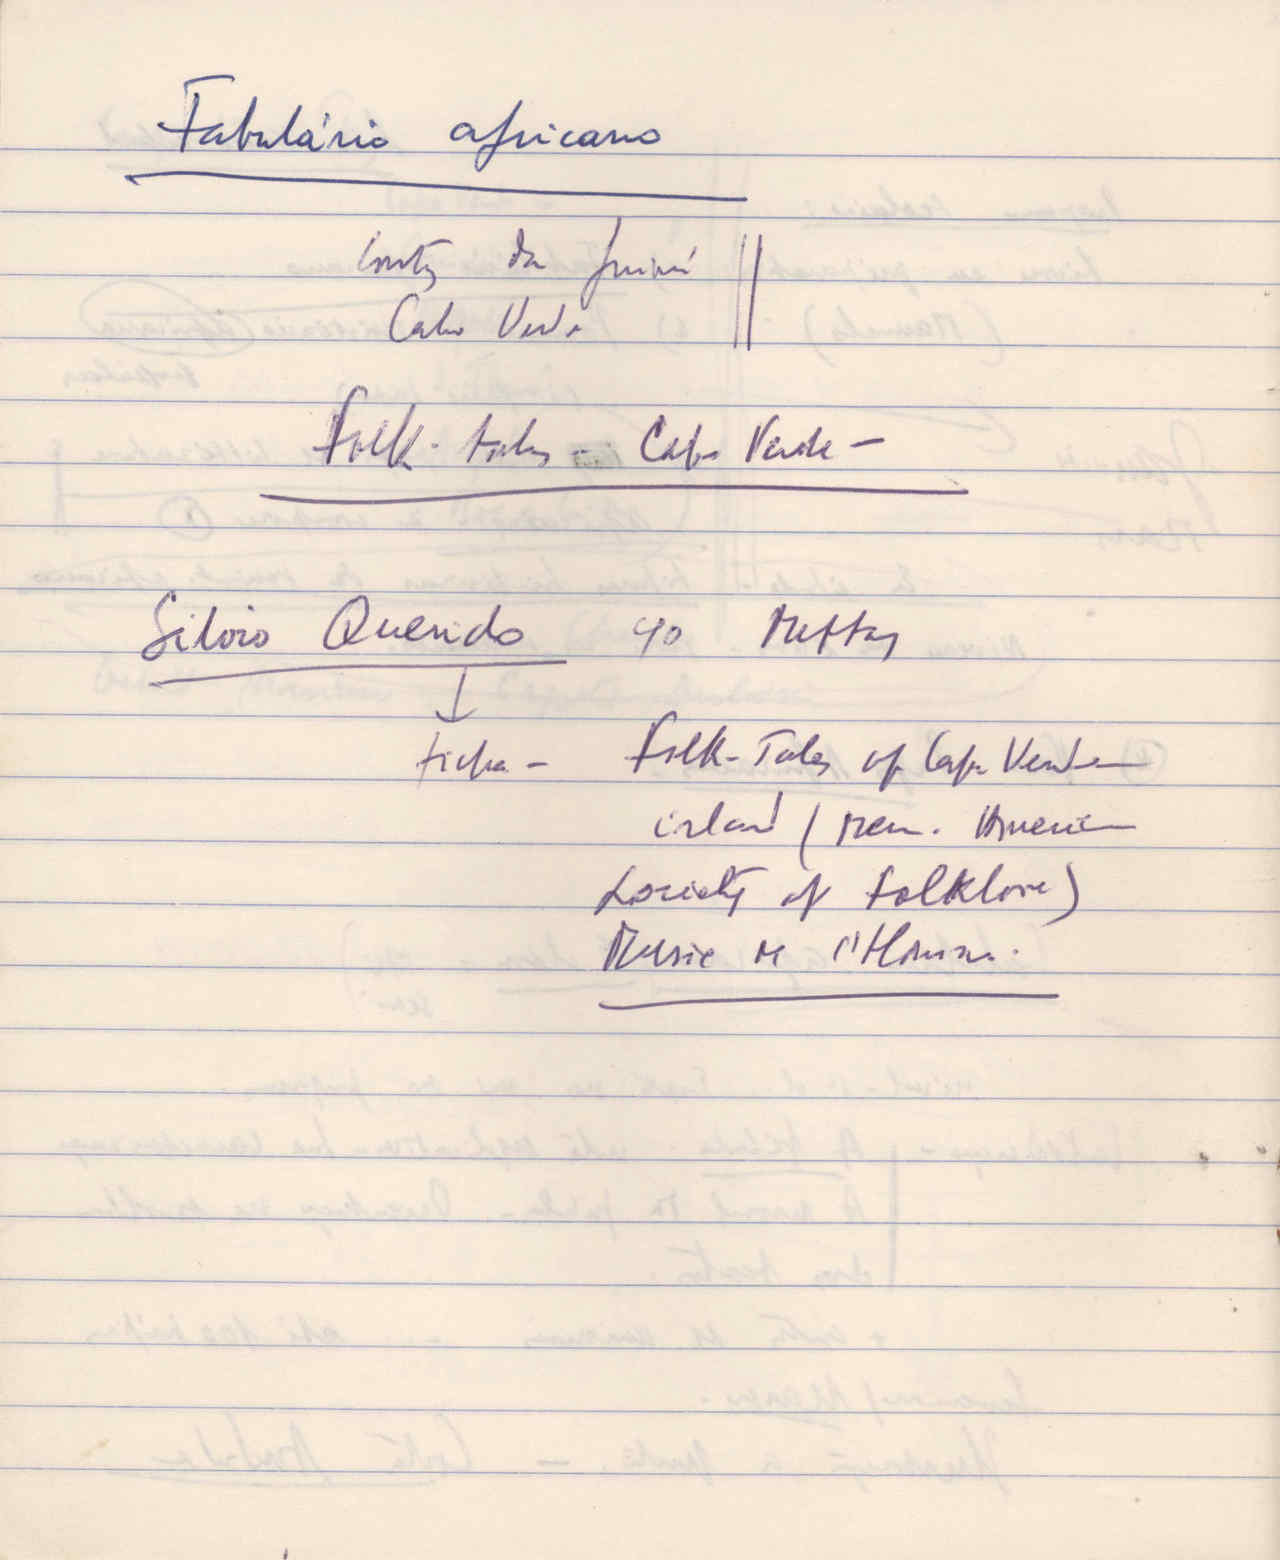 Fabulário africano
Contos da Guiné
Cabo Verde
Folk-tales - Cape Verde -
Silvio Querido 40
ficha - Folk-Tales of Cape Verde
island (Mem. American
Society of Folklore)
Musée de l'Homme.